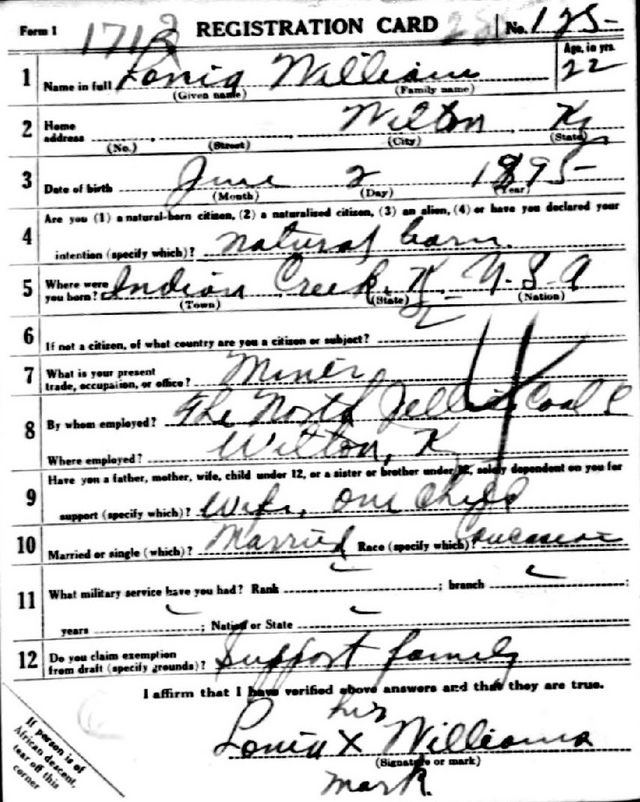 Form 1 1713 REGISTRATION CARD No. 125
Age, in yrs.
1 Name in full Louia William 22
(Given name) (Family name)
2 Home address Wilton, Ky
(No.) (Street) (City) (State)
3 Date of birth June 2 1895
(Month) (Day) (Year)
4 Are you (1) a natural-born citizen, (2) a naturalized citizen, (3) an alien, (4) or have you declared your
intention (specify which)? natural born.
5 Where were you born? Indian Creek, K U.S.A
(Town) (State) (Nation)
6 If not a citizen, of what country are you a citizen or subject?
7 What is your present trade, occupation, or office? Miner
8 By whom employed? The North Jellico Coal C
Where employed? Wilton, K
9 Have you a father, mother, wife, child under 12, or a sister or brother under 12, solely dependent on you for
support (specify which)? Wife, one child
10 Married or single (which)? Married Race (specify which)? Caucasian
11 What military service have you had? Rank ; branch ;
years ; Nation or State
12 Do you claim exemption from draft (specify grounds)? Support family
I affirm that I have verified above answers and that they are true.
his
Louia X Williams
(Signature or mark)
mark.
If person is of
African descent,
tear off this
corner